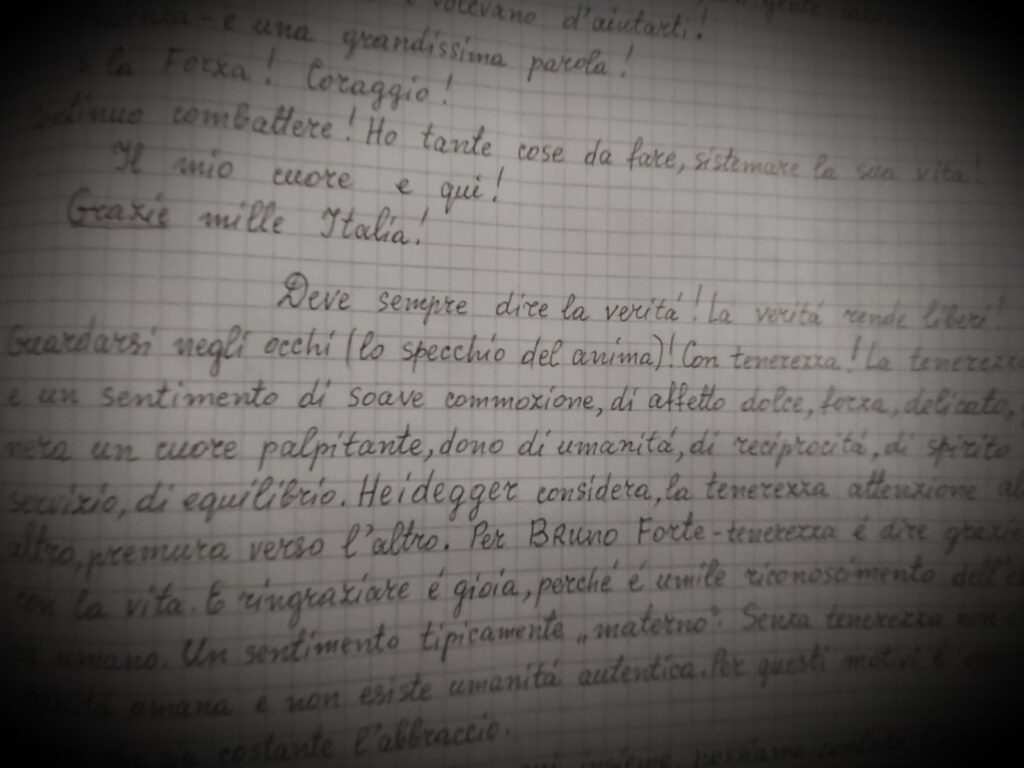 volevano d'aiutarti!
- e una grandissima parola!
la Forza! Coraggio!
Continuo combattere! Ho tante cose da fare, sistemare la sua vita!
Il mio cuore e qui!
Grazie mille Italia!
Deve sempre dire la veritá! La veritá rende liberi!
Guardarsi negli occhi (lo specchio del anima)! Con tenerezza! La tenerezza
e un sentimento di soave commozione, di affetto dolce, forza, delicato,
nera un cuore palpitante, dono di umanitá, di reciprocitá, di spirito
servizio, di equilibrio. Heidegger considera, la tenerezza attenzione al
altro, premura verso l'altro. Per Bruno Forte - tenerezza é dire grazie
con la vita. E ringraziare é gioia, perché é umile riconoscimento dell'
umano. Un sentimento tipicamente „materno". Senza tenerezza non
umana e non esiste umanitá autentica. Per questi motivi é
sia costante l'abbraccio.
insieme, possiamo